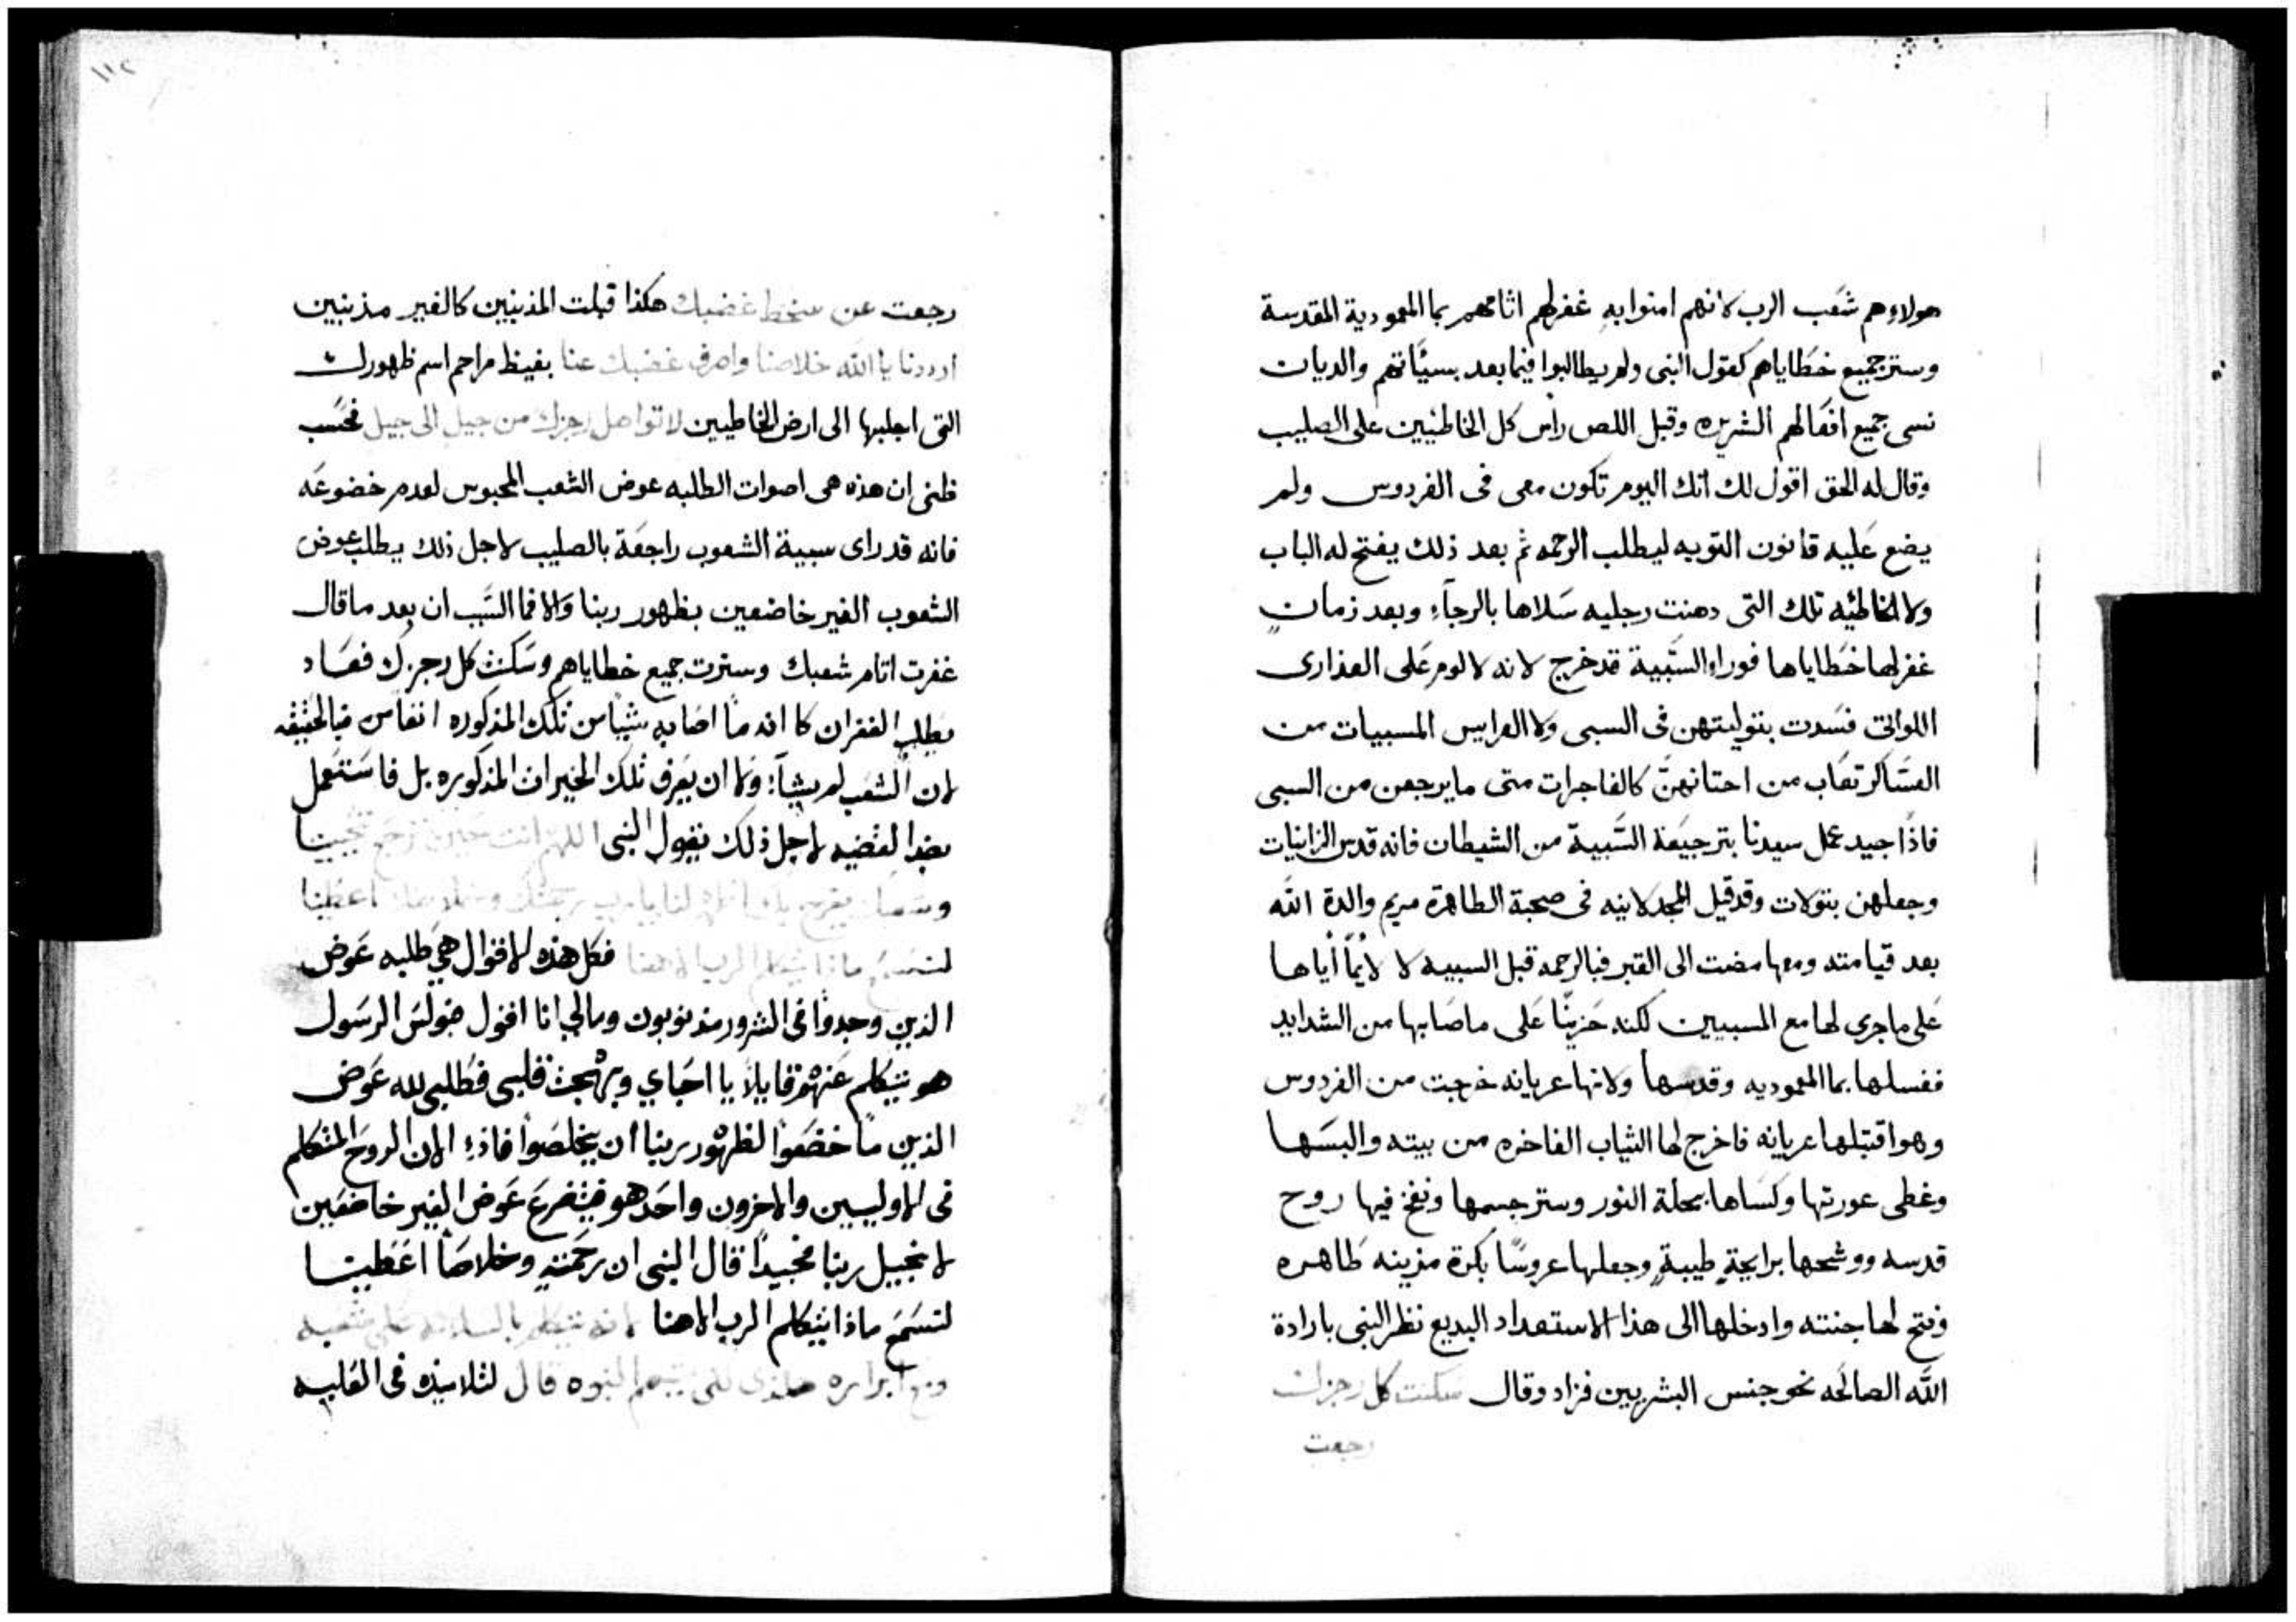 هولاء هم شعب الرب لانهم امنوا به غفر لهم اثامهم بما المعمودية المقدسة
وستر جميع خطاياهم كقول النبى ولم يطالبوا فيما بعد بسيّاتهم والديان
نسى جميع افعالهم الشريره وقبل اللص راس كل الخاطيين على الصليب
وقال له الحق اقول لك انك اليوم تكون معى فى الفردوس ولم
يضع عليه قانون التوبه ليطلب الرحمه ثم بعد ذلك يفتح له الباب
ولا الخاطئه تلك التى دهنت رجليه سلاها بالرجاء وبعد زمان
غفر لها خطاياها فورا والسّبية قد خرج لانه لا لوم على العذارى
اللواتى فسدت بتوليتهن فى السبى ولا العرايس المسبيات من
العساكر تعاب من احتانهنّ كالفاجرات متى ما يرجعن من السبى
فاذًا جيد عمل سيدنا بترجيعة السّبية من الشيطان فانه قدس الزانيات
وجعلهن بتولات وقد قيل المجدلانيه فى صحبة الطاهرة مريم والدة الله
بعد قيامته ومعها مضت الى القبر فبالرحمه قبل السبيه لا لايمًا أياها
على ما جرى لها مع المسبيين لكنه حزينًا على ما صابها من الشدايد
فغسلها بما المعموديه وقدسها ولانها عريانه خرجت من الفردوس
وهو اقتبلها عريانه فاخرج لها الثياب الفاخره من بيته والبسها
وغطى عورتها وكساها بحلة النور وستر جسمها ونفخ فيها روح
قدسه ووشحها برايحةٍ طيبةٍ وجعلها عروسًا بكرة مزينه طاهره
وفتح لها جنته وادخلها الى هذا الاستعداد البديع نظر النبى بارادة
الله الصالحه نحو جنس البشريين فزاد وقال سكنت كل رجزك
رجعت
١١٢
رجعت عن سخط غضبك هكذا قبلت المذنبين كالغير مذنبين
ارددنا يا الله خلاصنا واصرف غضبك عنا بغيظ مراحم اسم ظهورك
التى اجلبها الى ارض الخاطيين لا تواصل رجزك من جيل الى جيل فحسب
ظنى ان هذه هى اصوات الطلبه عوض الشعب المحبوس لعدم خضوعه
فانه قد راى سبية الشعوب راجعة بالصليب لاجل ذلك يطلب عوض
الشعوب الغير خاضعين بظهور ربنا والا فما السّبب ان بعد ما قال
غفرت اثام شعبك وسترت جميع خطاياهم وسكنت كل رجزك فعاد
يطلب الغفران كانه ما اصابه شيًا من تلك المذكوره انفًا من فبالحقيقه
لان الشعب لم يشآء ولا ان يعرف تلك الخيرات المذكوره بل فاستعمل
بضد القضيه لاجل ذلك يقول النبى اللهم انت حين ترجع تحيينا
وشعبك يفرح بك اظهر لنا يا رب رحمتك وخلاصك اعطينا
لنسمع ماذا يتكلم الرب الاهنا فكل هذه الاقوال هي طلبه عوض
الذين وجدوا فى الشرور مذنوبون ومالي انا اقول فبولس الرسول
هو يتكلم عنهم قايلًا يا احباي وبهجت قلبى فطلبى لله عوض
الذين ما خضعوا لظهور ربنا ان يخلصوا فاذًا الان الروح المتكلم
فى الاوليين والاخرون واحد هو فيتضرع عوض الغير خاضعين
لانجيل ربنا مجيدًا قال النبى ان رحمته وخلاصًا اعطينا
لنسمع ماذا يتكلم الرب الاهنا لانه يتكلم بالسلامه على شعبه
ابراره قال لتلاميذه فى العليه